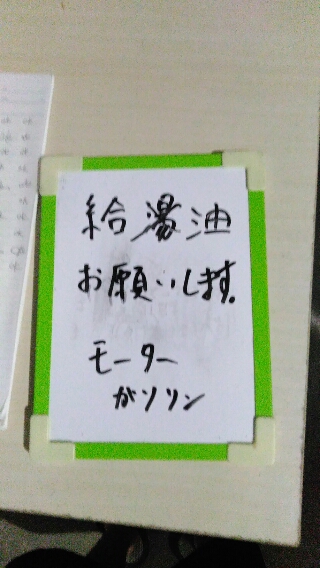 給湯油
お願いします。
モーター
ガソリン